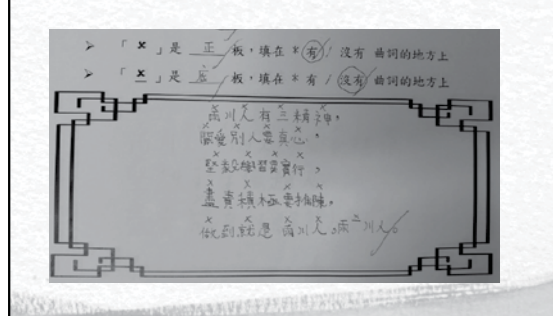 ➤ 「×」是 正 板,填在*有/沒有 曲詞的地方上
➤ 「×」是 底 板,填在*有/沒有 曲詞的地方上
雨川人有三精神,
關愛別人要真心,
堅毅學習要實行,
盡責積極要推陳,
做到就是雨川人。雨川人。